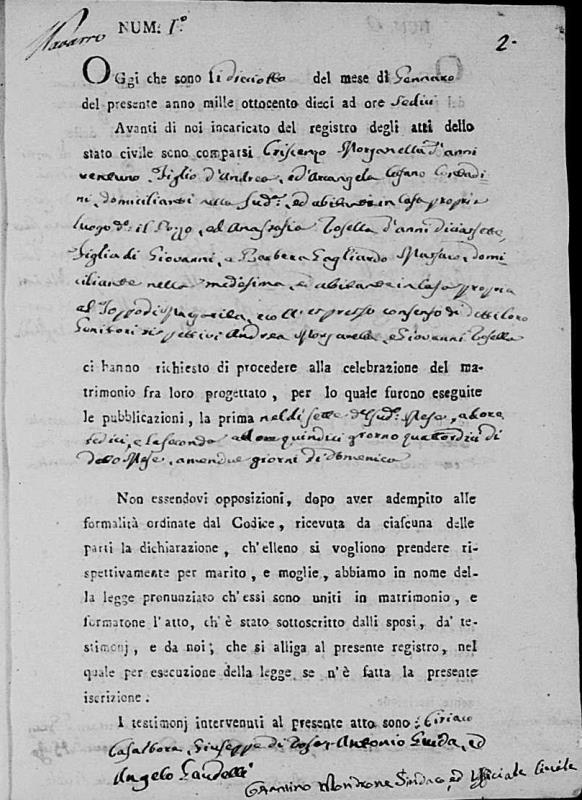 Navarro NUM: I° 2.
OGgi che sono li diciotto del mese di Gennaro
del presente anno mille ottocento dieci ad ore sedici
Avanti di noi incaricato del registro degli atti dello
stato civile sono comparsi Criscenzo Morganella d'anni
ventuno figlio d'Andrea, ed'Arcangela Contadi
ni, domiciliante nella Sud.ª, ed abitante in Casa propria
luogo d.° il Pozzo, ed Anastasia Tosella d'anni diciassette,
figlia di Giovanni, e Barbera Gagliardo Massaro, domi
ciliante nella medesima, ed abitante in Casa propria
al di con espresso consenso di detti loro
Genitori rispettivi Andrea Morganella, e Giovanni Tosella
ci hanno richiesto di procedere alla celebrazione del ma-
trimonio fra loro progettato, per lo quale furono eseguite
le pubblicazioni, la prima nel di sette d. Sud.° Mese, ad ore
sedici, e la seconda ad ore quindici giorno quattordici di
detto Mese, amendue giorni di Domenica
Non essendovi opposizioni, dopo aver adempito alle
formalità ordinate dal Codice, ricevuta da ciascuna delle
parti la dichiarazione, ch'elleno si vogliono prendere ri-
spettivamente per marito, e moglie, abbiamo in nome del-
la legge pronunziato ch'essi sono uniti in matrimonio, e
formatone l'atto, ch'è stato sottoscritto dalli sposi, da' te-
stimonj, e da noi, che si alliga al presente registro, nel
quale per esecuzione della legge se n'è fatta la presente
iscrizione.
I testimonj intervenuti al presente atto sono: Ciriaco
Casalbora, Giuseppe di Antonio Guida, ed
Angelo Gaudelli
Carmino Mondrone Sindaco, ed Ufficiale Civile